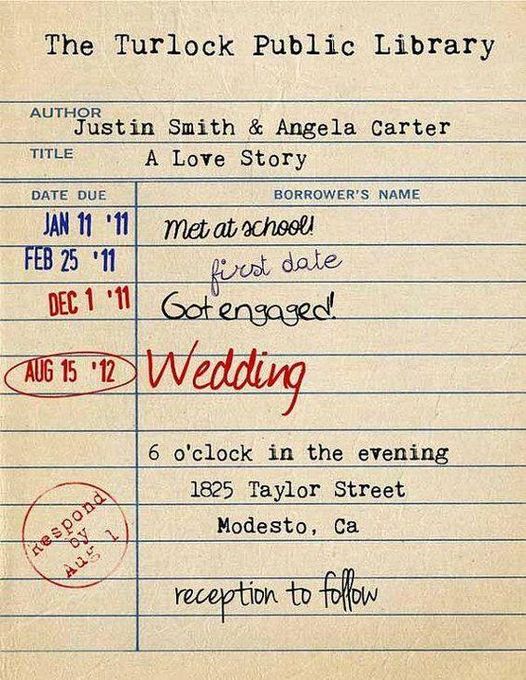 The Turlock Public Library
AUTHOR
Justin Smith & Angela Carter
TITLE
A Love Story
DATE DUE
BORROWER'S NAME
JAN 11 '11
Met at school!
FEB 25 '11
first date
DEC 1 '11
Got engaged!
AUG 15 '12
Wedding
6 o'clock in the evening
1825 Taylor Street
Modesto, Ca
Respond
by
Aug 1
reception to follow